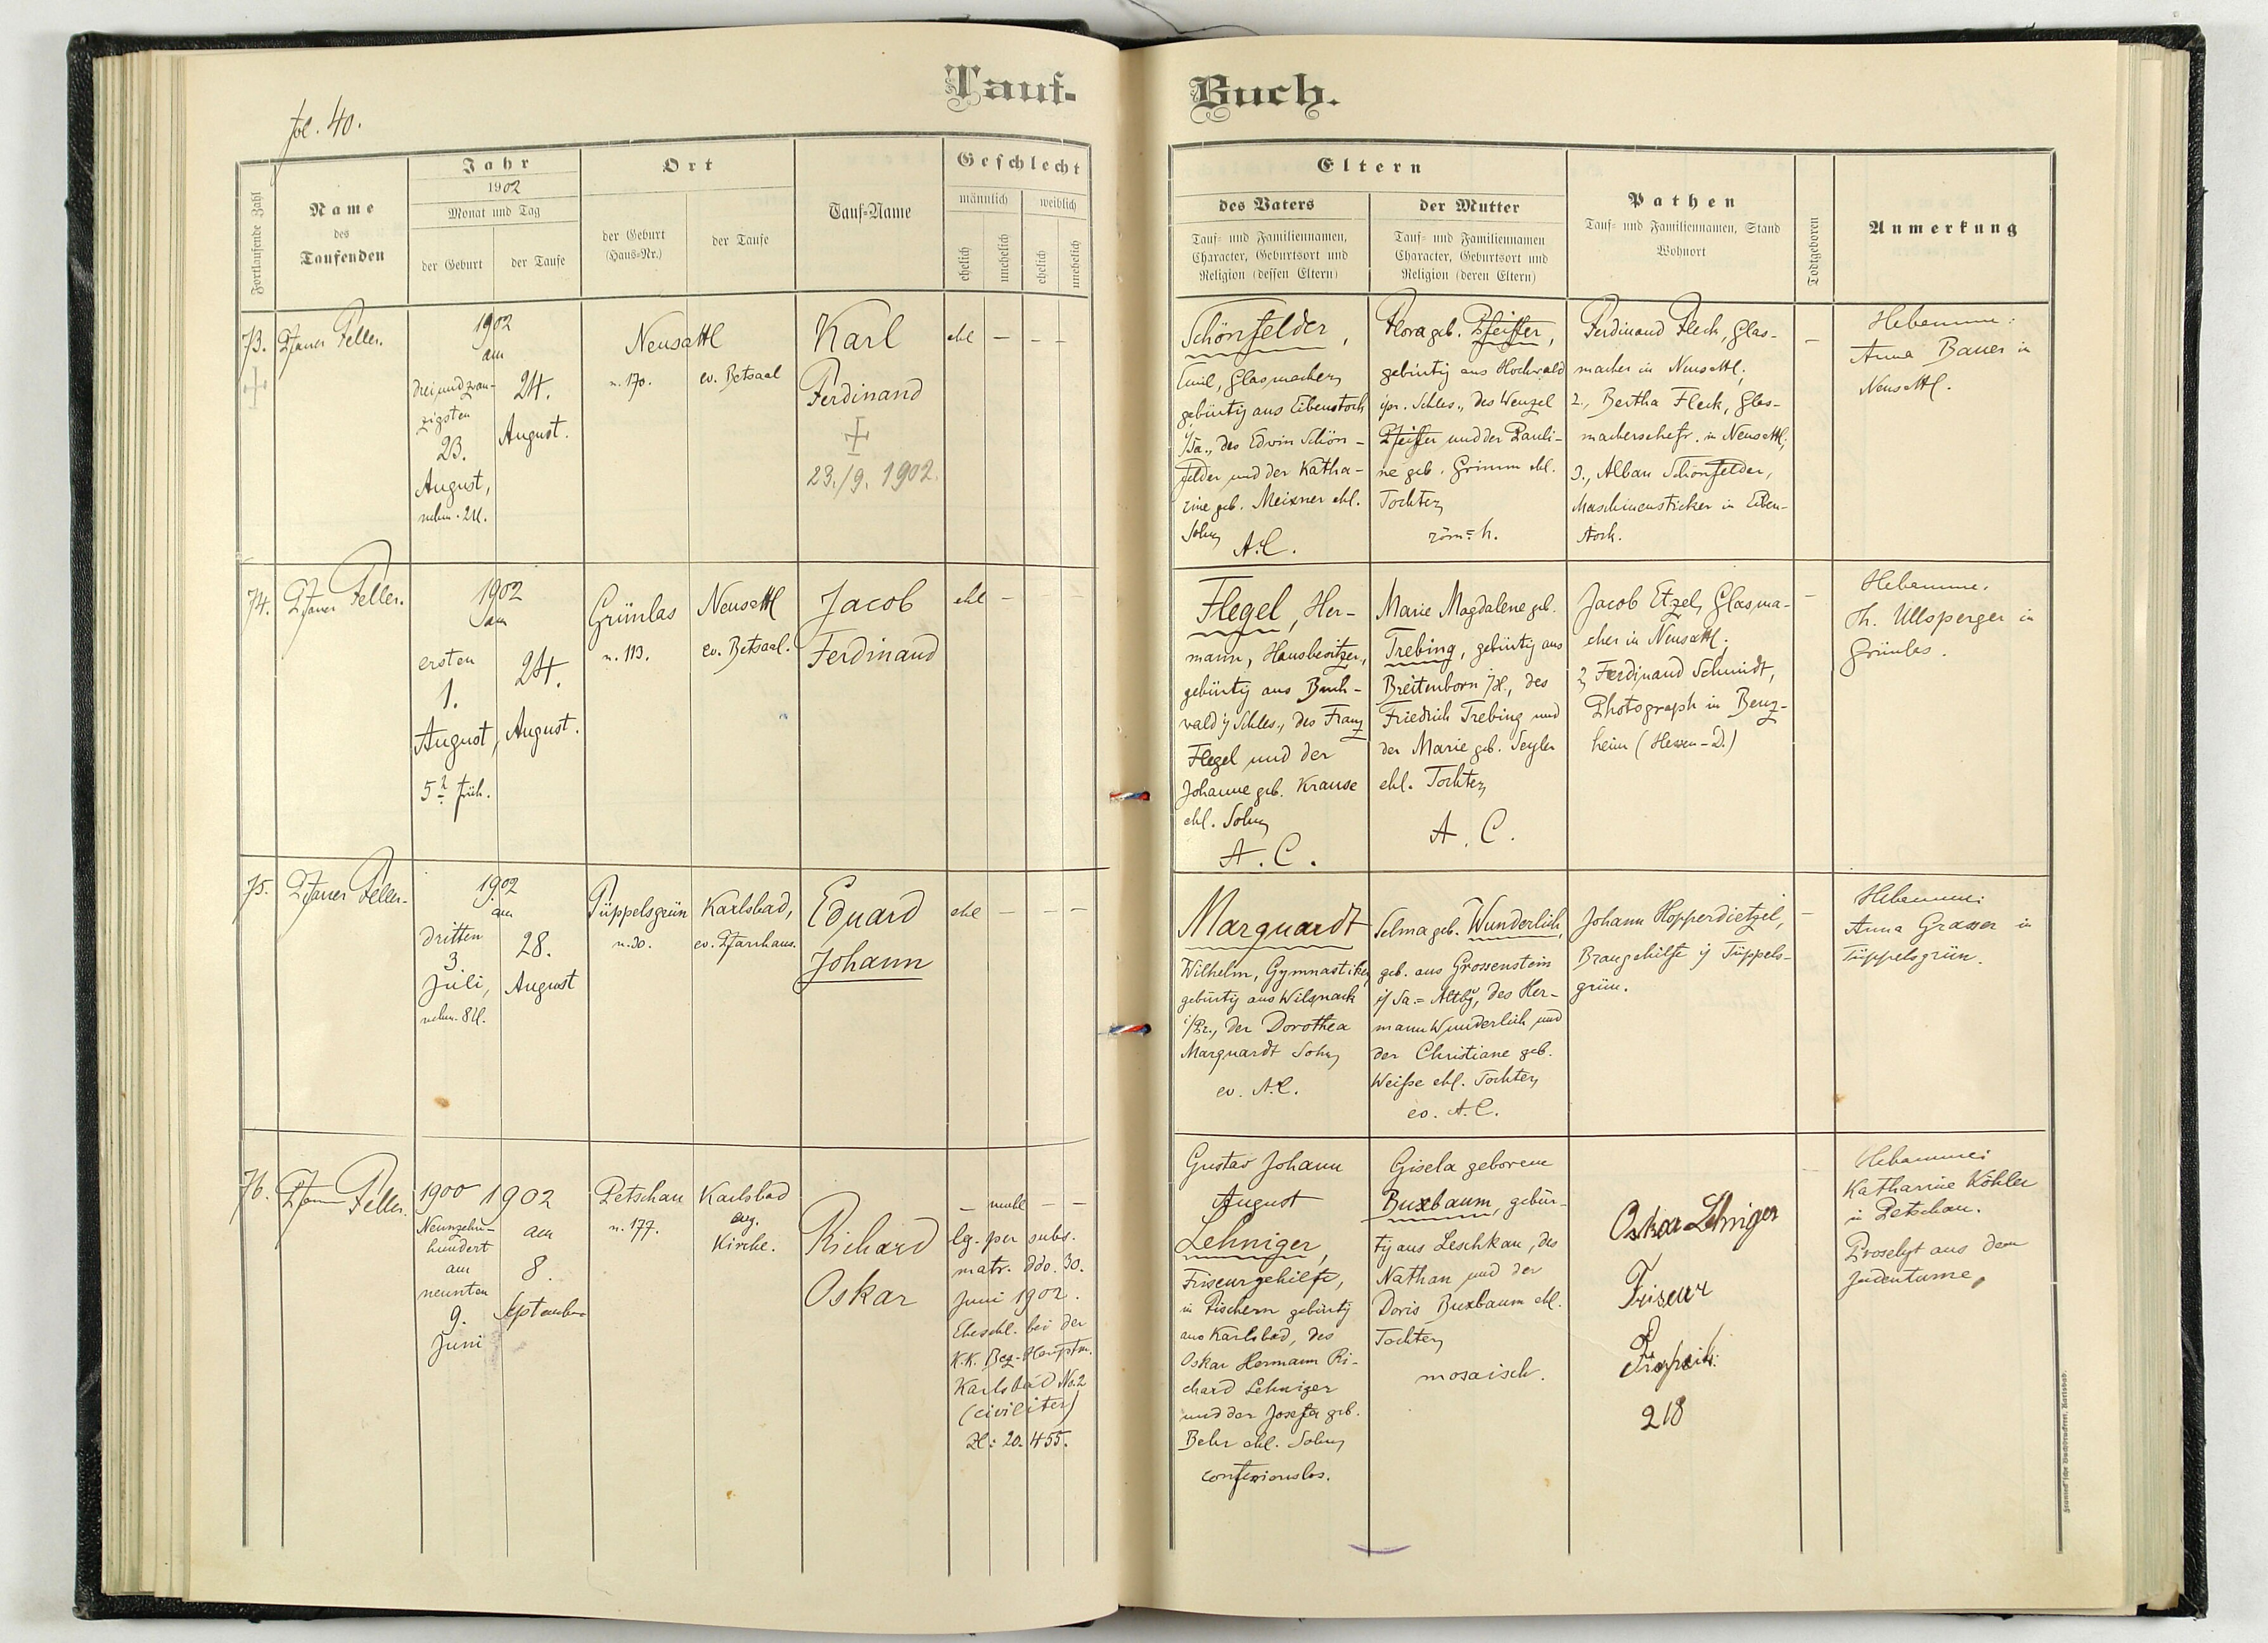 Tauf-
Buch.
fol. 40.
Fortlaufende Zahl
Name
des
Taufenden
Jahr
1902
Monat und Tag
der Geburt
der Taufe
Ort
der Geburt
(Haus-Nr.)
der Taufe
Tauf-Name
Geschlecht
männlich
weiblich
ehelich
unehelich
ehelich
unehelich
Eltern
des Vaters
Tauf- und Familiennamen,
Character, Geburtsort und
Religion (dessen Eltern)
der Mutter
Tauf- und Familiennamen
Character, Geburtsort und
Religion (deren Eltern)
Pathen
Tauf- und Familiennamen, Stand
Wohnort
Todtgeboren
Anmerkung
73.
Pfarrer Feller.
1902
am
dreiundzwan-
zigsten
23.
August,
nchm. 2U.
24.
August.
Neusattl
n. 170.
ev. Betsaal
Karl
Ferdinand
23./9. 1902.
ehl – – –
Schönfelder,
Emil, Glasmacher,
gebürtig aus Eibenstock
i/Sa., des Edwin Schön-
felder und der Katha-
rine geb. Meixner ehl.
Sohn,
A.C.
Flora geb. Pfeiffer,
gebürtig aus Hochwald
i/pr. Schles., des Wenzel
Pfeiffer und der Pauli-
ne geb. Grimm ehl.
Tochter,
röm.-k.
Ferdinand Fleck, Glas-
macher in Neusattl;
2., Bertha Fleck, Glas-
macherschefr. in Neusattl;
3., Alban Schönfelder,
Maschinensticker in Eiben-
stock.
–
Hebamme:
Anna Bauer in
Neusattl.
74.
Pfarrer Feller.
1902
am
ersten
1.
August,
5h früh.
24.
August.
Grünlas
n. 113.
Neusattl
ev. Betsaal.
Jacob
Ferdinand
ehl –
Flegel, Her-
mann, Hausbesitzer,
gebürtig aus Buch-
wald i/ Schles., des Franz
Flegel und der
Johanne geb. Krause
ehl. Sohn,
A.C.
Marie Magdalene geb.
Trebing, gebürtig aus
Breitenborn i/H., des
Friedrich Trebing und
der Marie geb. Seyler
ehl. Tochter,
A.C.
Jacob Etzel, Glasma-
cher in Neusattl;
2, Ferdinand Schmidt,
Photograph in Benz-
heim (Hessen-D.)
–
Hebamme:
Th. Ullsperger in
Grünlas.
75.
Pfarrer Feller.
1902
am
dritten
3.
Juli,
nchm. 8U.
28.
August
Tüppelsgrün
n. 30.
Karlsbad,
ev. Pfarrhaus.
Eduard
Johann
ehl – – –
Marquardt
Wilhelm, Gymnastiker,
gebürtig aus Wilsnack
i/Pr., der Dorothea
Marquardt Sohn,
ev. A.C.
Selma geb. Wunderlich,
geb. aus Grossenstein
i/ Sa.-Altbg, des Her-
mann Wunderlich und
der Christiane geb.
Weiße ehl. Tochter,
ev. A.C.
Johann Hopperdietzel,
Braugehilfe i/ Tüppels-
grün.
–
Hebamme:
Anna Grasser in
Tüppelsgrün.
76.
Pfarrer Feller.
1900
Neunzehn-
hundert
am
neunten
9.
Juni
1902
am
8.
September
Petschau
n. 177.
Karlsbad
evg.
Kirche.
Richard
Oskar
– unehl – –
lg. per subs.
matr. ddo. 30.
Juni 1902.
Eheschl. bei der
K.K. Bez-Hauptm.
Karlsbad No. 2
(civiliter)
Zl: 20.455.
Gustav Johann
August
Lehniger,
Friseurgehilfe,
in Fischern gebürtig
aus Karlsbad, des
Oskar Hermann Ri-
chard Lehniger
und der Josefa geb.
Behr ehl. Sohn,
confessionslos.
Gisela geborene
Buxbaum, gebür-
tig aus Leschkau, des
Nathan und der
Doris Buxbaum ehl.
Tochter,
mosaisch.
Oskar Lehniger
Friseur
218
Hebamme:
Katharine Köhler
in Petschau.
Proselyt aus dem
Judentume,
Franieck'sche Buchdruckerei, Karlsbad.